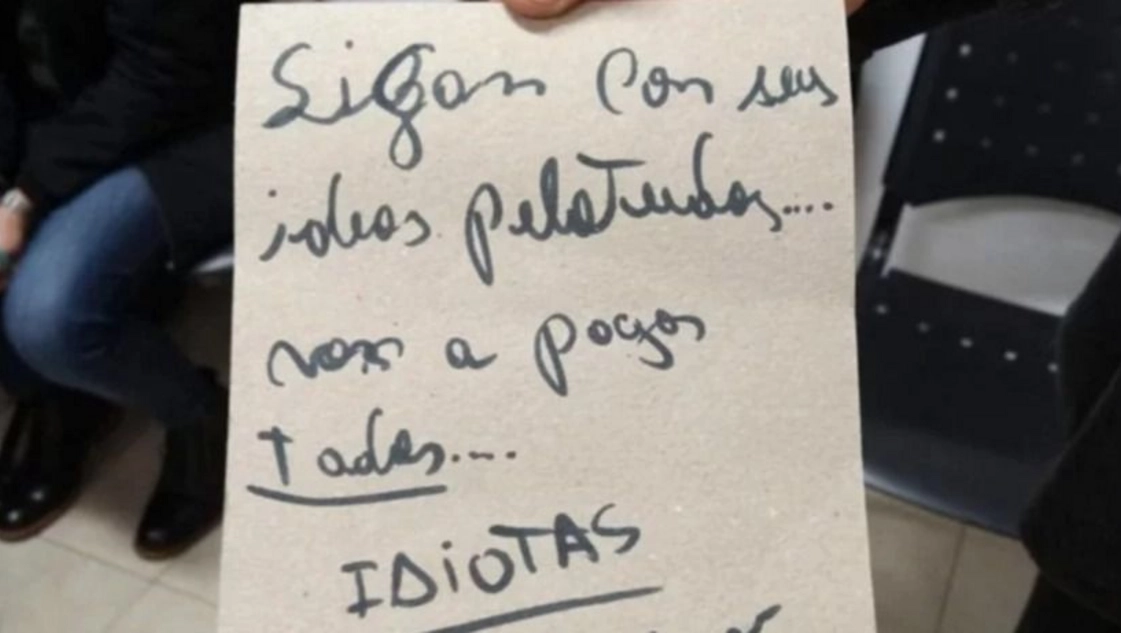 Sigan con sus
ideas pelotudas....
van a pagar
Todas....
IDiOTAS